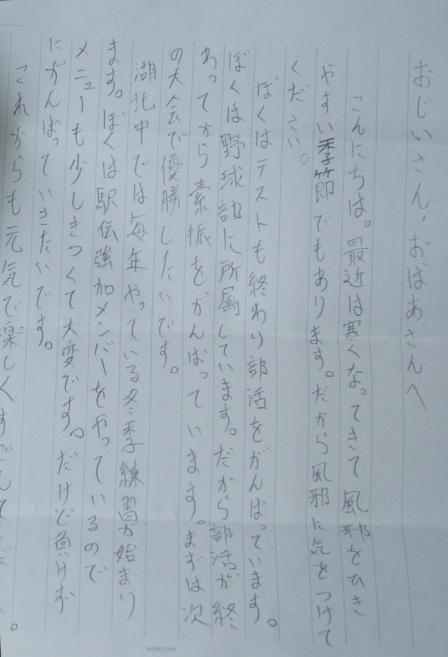 おじいさん、おばあさんへ
こんにちは。最近は寒くなってきて風邪をひき
やすい季節でもあります。だから風邪に気をつけて
ください。
ぼくはテストも終わり部活をがんばっています。
ぼくは野球部に所属しています。だから部活が終
わってから素振をがんばっています。まずは次
の大会で優勝したいです。
湖北中では毎年やっている冬季練習が始まり
ます。ぼくは駅伝強加メンバーをやっているので
メニューも少しきつくて大変です。だけど負けず
にがんばっていきたいです。
これからも元気で楽しくすごして
KOKUYO